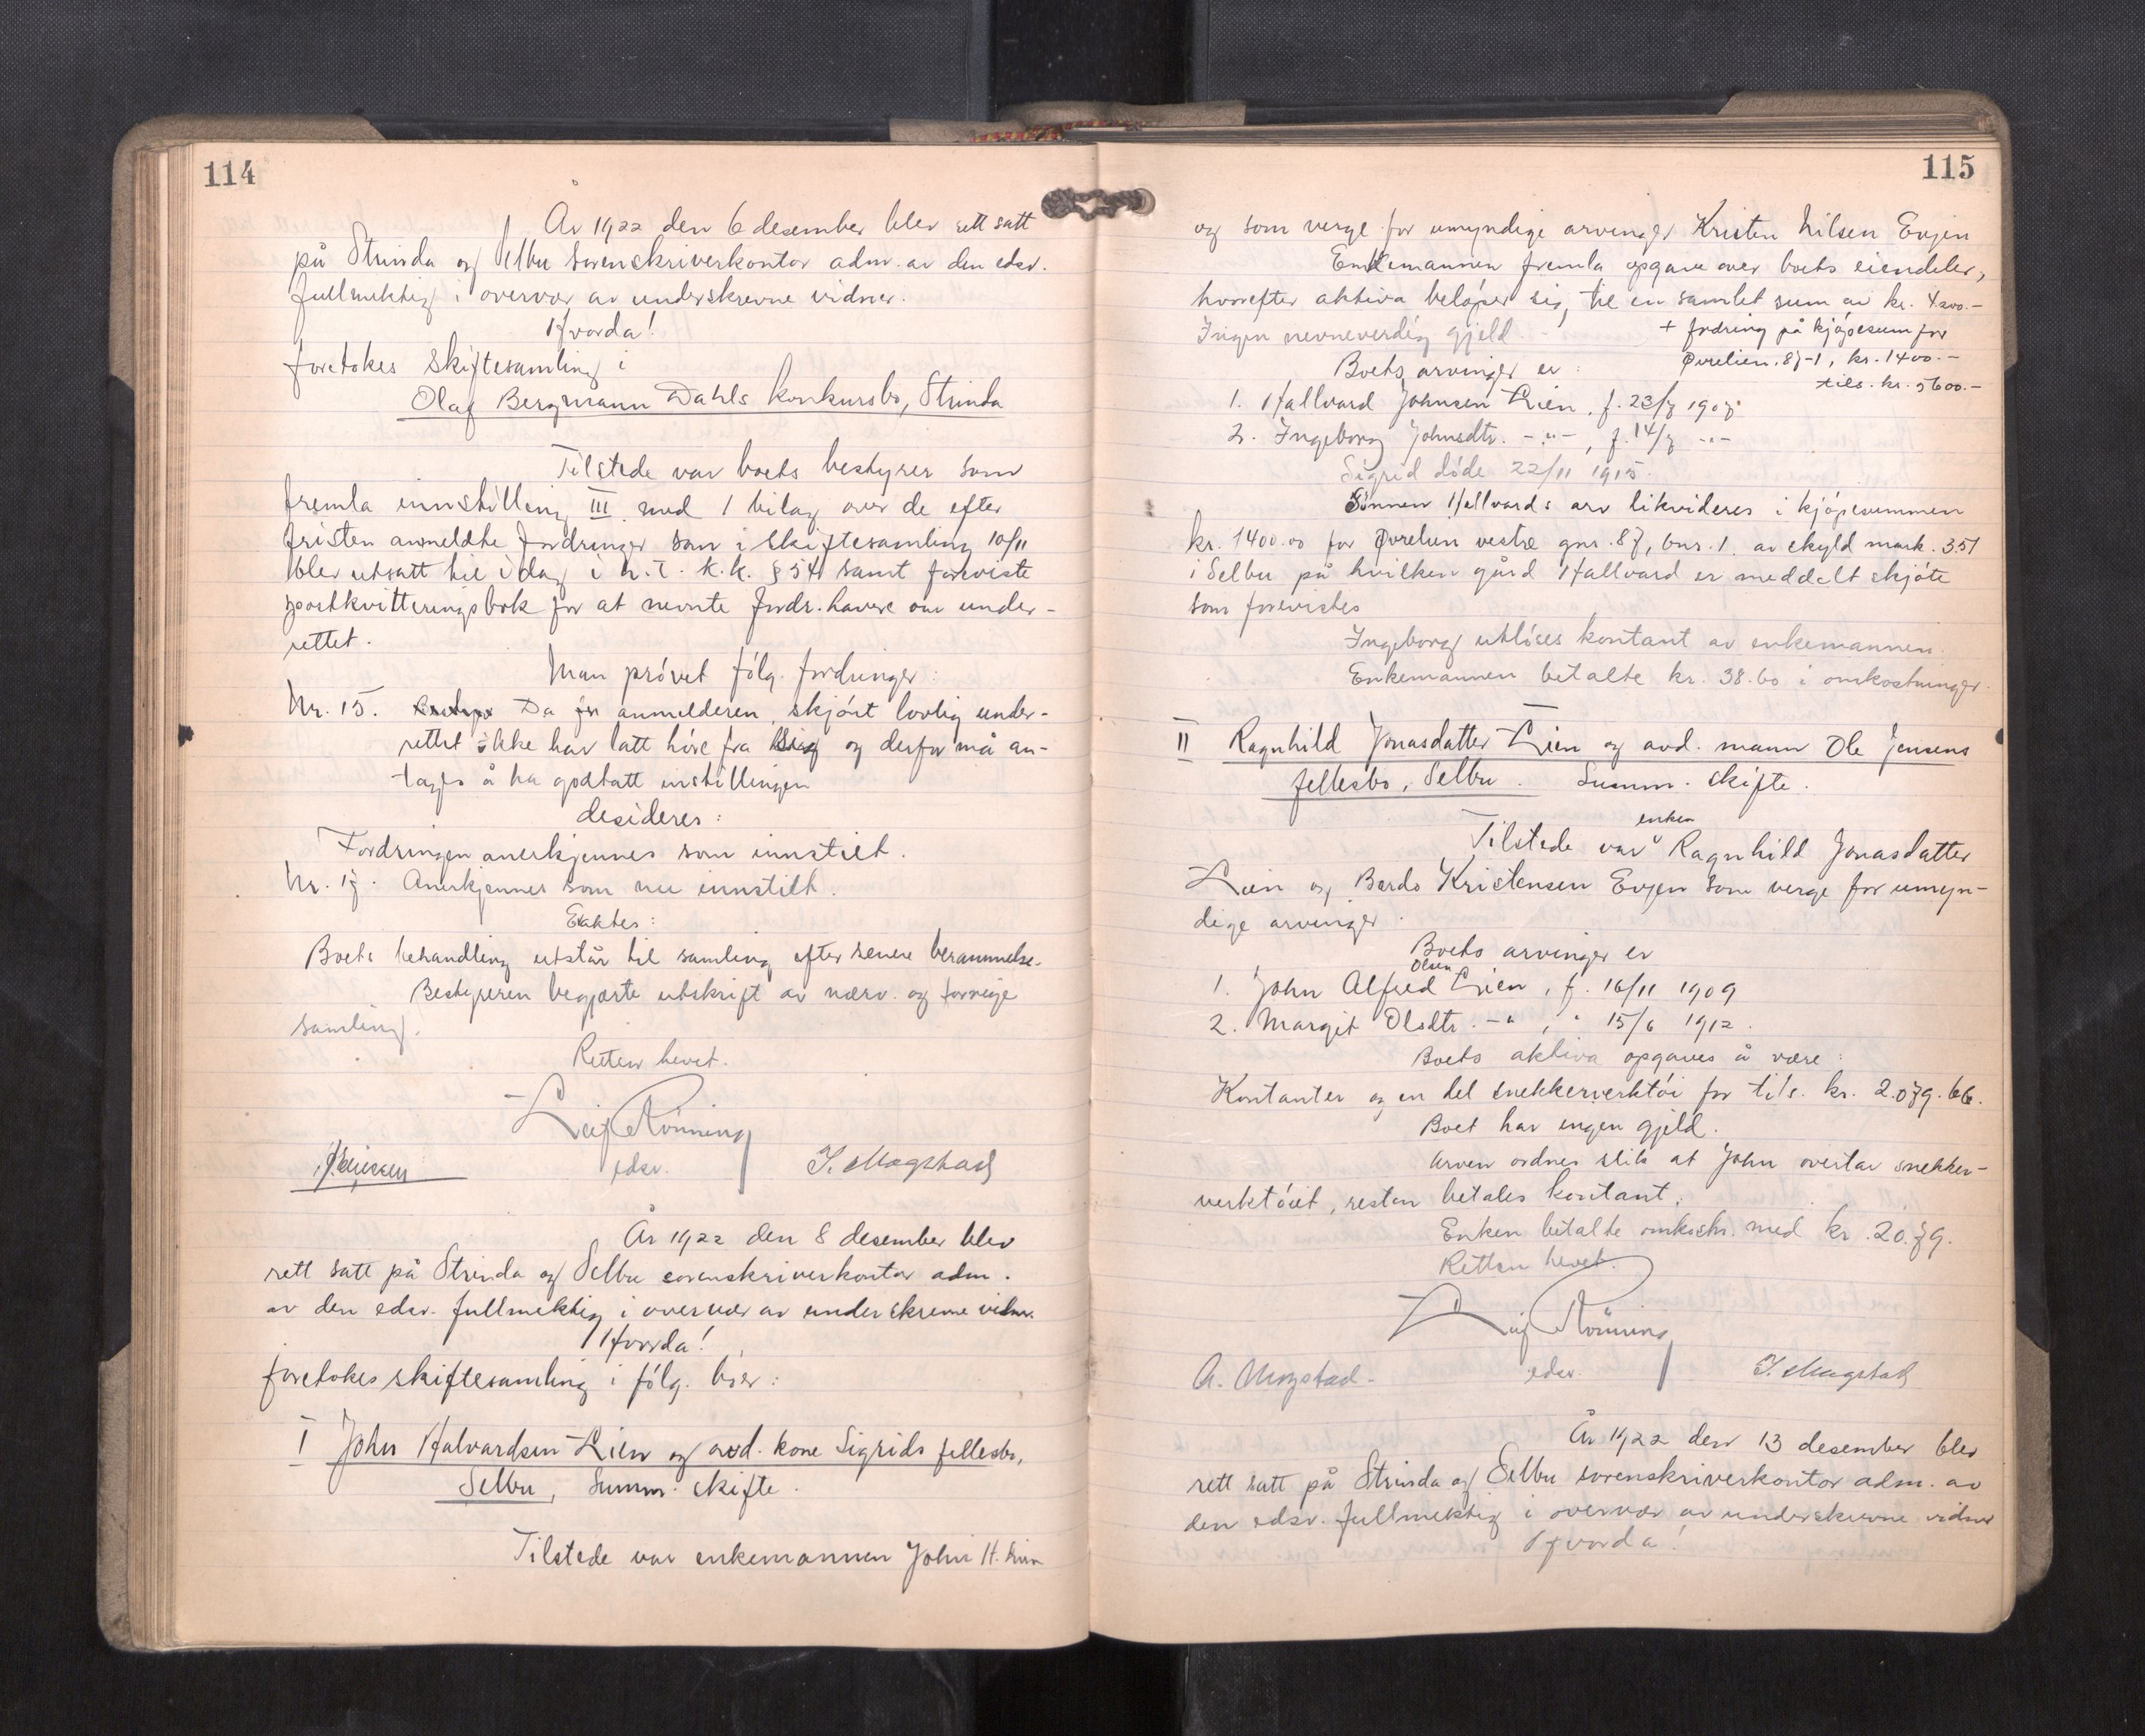 114
År 1922 den 6 desember blev rett satt
på Strinda og Selbu sorenskriverkontor adm. av den edsv.
fullmektig i overvær av underskrevne vidner.
Hvorda!
foretokes skiftesamling i
Olaf Bergmann Dahls konkursbo, Strinda
Tilstede var boets bestyrer som
fremla innstilling III med 1 bilag over de efter
fristen anmeldte fordringer som i skiftesamling 10/11
blev utsatt til idag i h.t. k.k. § 54 samt foreviste
postkvitteringsbok for at nevnte fordr.havere var under-
rettet.
Man prøvet følg. fordringer:
Nr. 15. Da anmelderen, skjønt lovlig under-
rettet ikke har latt høre fra sig og derfor må an-
tages å ha godtatt instillingen
desideres:
Fordringen anerkjennes som innstilt.
Nr. 17. Anerkjennes som nu innstilt.
Eaktes:
Boets behandling utstår til samling efter senere berammelse.
Bestyreren begjærte utskrift av nærv. og forrige
samling.
Retten hevet.
Leif Rönning
edsv.
I. Mogstad
År 1922 den 8 desember blev
rett satt på Strinda og Selbu sorenskriverkontor adm.
av den edsv. fullmektig i overvær av underskrevne vidner.
Hvorda!
foretokes skiftesamling i følg. boer:
I John Halvardsen Lien og avd. kone Sigrids fellesbo,
Selbu, Summ. skifte.
Tilstede var enkemannen John H. Lien
115
og som verge for umyndige arvinger Kristen Nilsen Evjen
Enkemannen fremla opgave over boets eiendeler,
hvorefter aktiva beløper sig til en samlet sum av kr. 4200.-
Ingen nevneverdig gjeld.
+ fordring på kjøpesum for
Øvrelien 87-1, kr. 1400.-
tils. kr. 5600.-
Boets arvinger er:
1. Hallvard Johnsen Lien, f. 23/7 1907
2. Ingeborg Johnsdtr. -"-, f. 14/7 -"-
Sigrid døde 22/11 1915.
Sønnen Hallvards arv likvideres i kjøpesummen
kr. 1400.00 for Øvrelien vestre gnr. 87, bnr. 1. av skyld mark. 3.51
i Selbu på hvilken gård Hallvard er meddelt skjøte
som forevistes
Ingeborg utløses kontant av enkemannen.
Enkemannen betalte kr. 38.60 i omkostninger.
II Ragnhild Jonasdatter Lien og avd. mann Ole Jensens
fellesbo, Selbu. Summ. skifte.
enken
Tilstede var Ragnhild Jonasdatter
Lien og Bardo Kristensen Evjen som verge for umyn-
dige arvinger.
Boets arvinger er
Olsen
1. John Alfred Lien, f. 16/11 1909
2. Margit Olsdtr. -" , " 15/6 1912.
Boets aktiva opgaves å være:
Kontanter og en del snekkerverktøi for tils. kr. 2.079.66.
Boet har ingen gjeld.
Arven ordnes slik at John overtar snekker-
verktøiet, resten betales kontant.
Enken betalte omkostn. med kr. 20.79.
Retten hevet.
Leif Rönning
edsv.
A. Mogstad.
I. Mogstad
År 1922 den 13 desember blev
rett satt på Strinda og Selbu sorenskriverkontor adm. av
den edsv. fullmektig i overvær av underskrevne vidner
Hvorda!